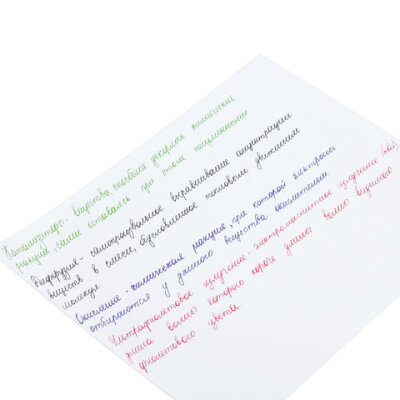 Катализатор - вещество, способное ускорять химические
реакции, само оставаясь при этом неизменным
Диффузия - самопроизвольное выравнивание концентрации
веществ в смеси, обусловленное тепловым движением
молекул
Окисление - химическая реакция, при которой электроны
отбираются у данного вещества окислителем
Ультрафиолетовое излучение - электромагнитное излучение
длина волны которого короче длины волны видимого
фиолетового света.